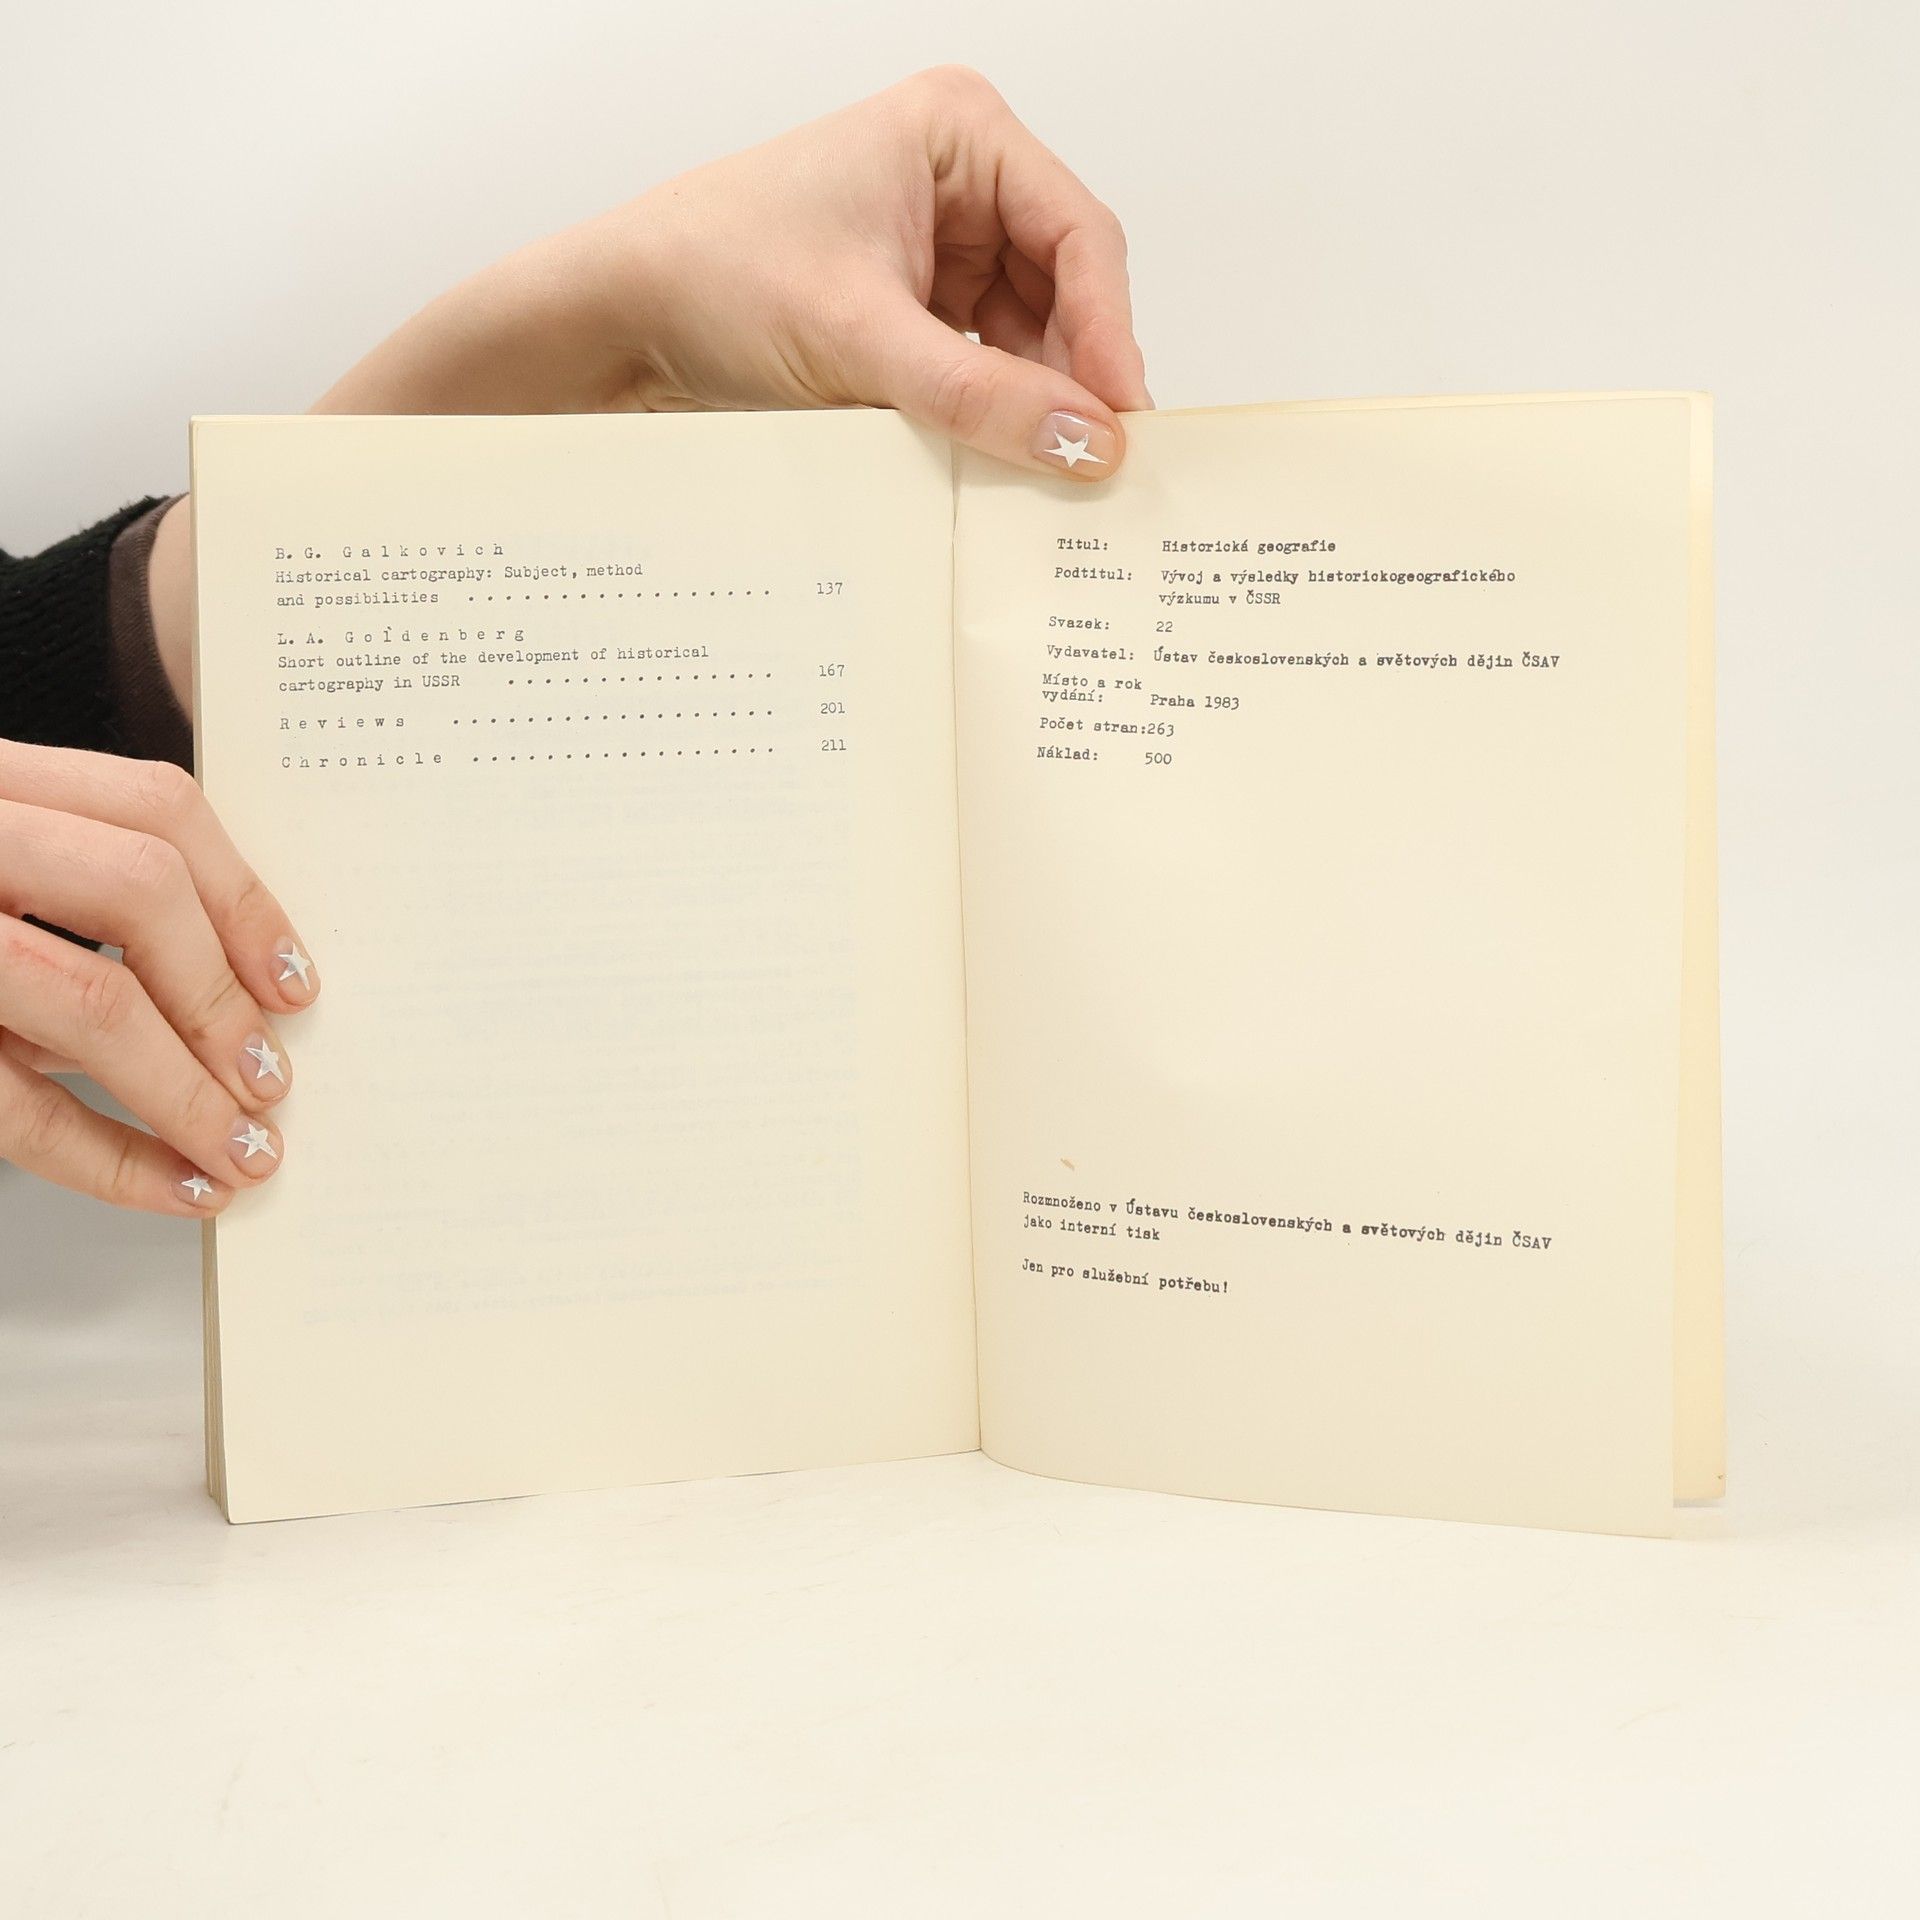 B. G. Galkovich
Historical cartography: Subject, method
and possibilities . . . . . . . . . . . . . . . . . 137
L. A. Goldenberg
Short outline of the development of historical
cartography in USSR . . . . . . . . . . . . . . . 167
Reviews . . . . . . . . . . . . . . . . . . 201
Chronicle . . . . . . . . . . . . . . . . . 211
Titul: Historická geografie
Podtitul: Vývoj a výsledky historickogeografického
výzkumu v ČSSR
Svazek: 22
Vydavatel: Ústav československých a světových dějin ČSAV
Místo a rok
vydání: Praha 1983
Počet stran:263
Náklad: 500
Rozmnoženo v Ústavu československých a světových dějin ČSAV
jako interní tisk
Jen pro služební potřebu!